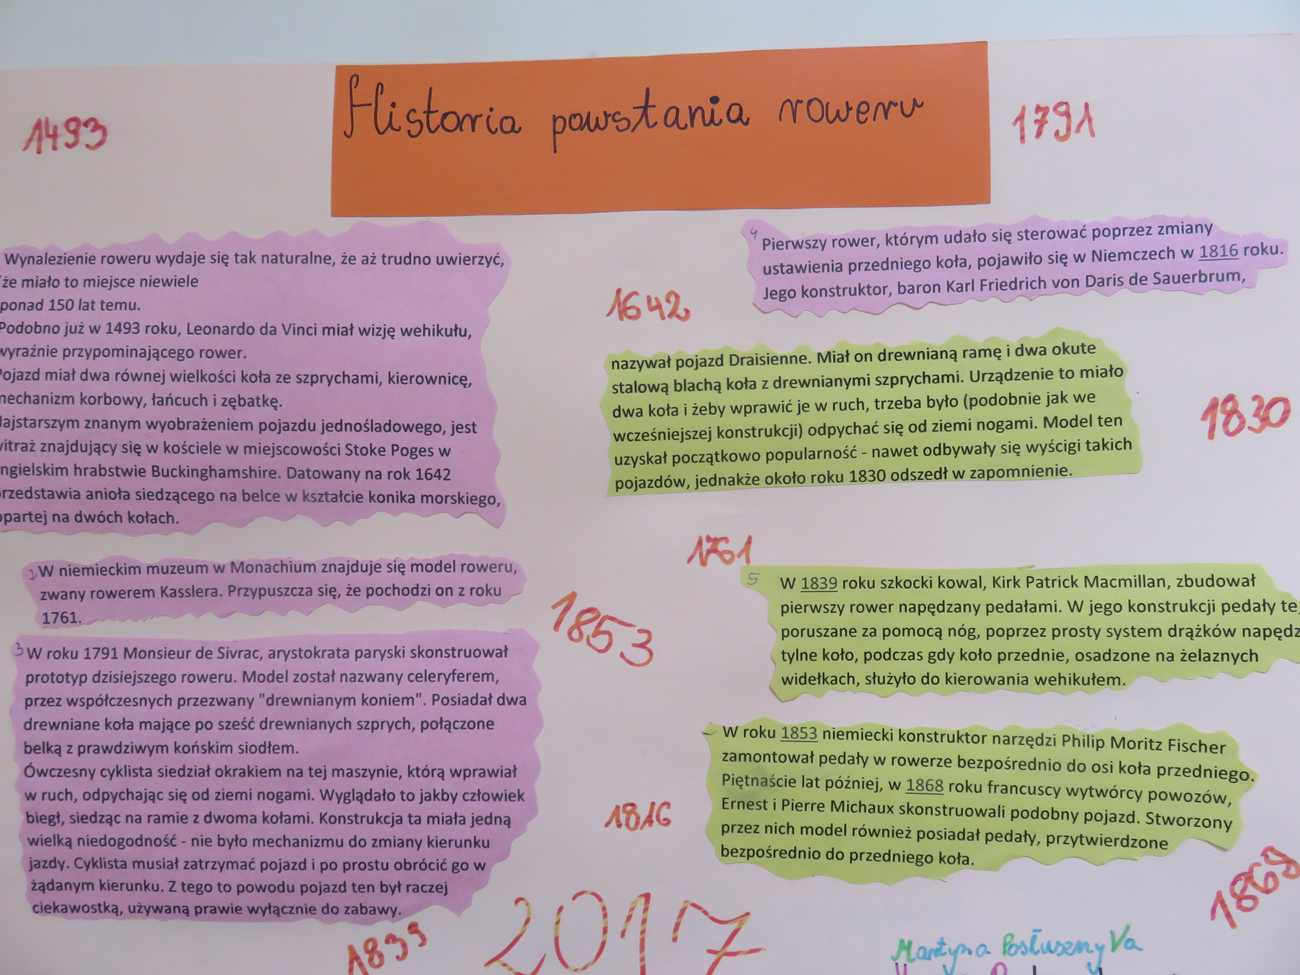 Historia powstania roweru
1493
1791
Wynalezienie roweru wydaje się tak naturalne, że aż trudno uwierzyć,
że miało to miejsce niewiele
ponad 150 lat temu.
Podobno już w 1493 roku, Leonardo da Vinci miał wizję wehikułu,
wyraźnie przypominającego rower.
Pojazd miał dwa równej wielkości koła ze szprychami, kierownicę,
mechanizm korbowy, łańcuch i zębatkę.
Najstarszym znanym wyobrażeniem pojazdu jednośladowego, jest
witraż znajdujący się w kościele w miejscowości Stoke Poges w
angielskim hrabstwie Buckinghamshire. Datowany na rok 1642
przedstawia anioła siedzącego na belce w kształcie konika morskiego,
opartej na dwóch kołach.
2 W niemieckim muzeum w Monachium znajduje się model roweru,
zwany rowerem Kasslera. Przypuszcza się, że pochodzi on z roku
1761.
3 W roku 1791 Monsieur de Sivrac, arystokrata paryski skonstruował
prototyp dzisiejszego roweru. Model został nazwany celeryferem,
przez współczesnych przezwany "drewnianym koniem". Posiadał dwa
drewniane koła mające po sześć drewnianych szprych, połączone
belką z prawdziwym końskim siodłem.
Ówczesny cyklista siedział okrakiem na tej maszynie, którą wprawiał
w ruch, odpychając się od ziemi nogami. Wyglądało to jakby człowiek
biegł, siedząc na ramie z dwoma kołami. Konstrukcja ta miała jedną
wielką niedogodność - nie było mechanizmu do zmiany kierunku
jazdy. Cyklista musiał zatrzymać pojazd i po prostu obrócić go w
żądanym kierunku. Z tego to powodu pojazd ten był raczej
ciekawostką, używaną prawie wyłącznie do zabawy.
1642
4 Pierwszy rower, którym udało się sterować poprzez zmiany
ustawienia przedniego koła, pojawiło się w Niemczech w 1816 roku.
Jego konstruktor, baron Karl Friedrich von Daris de Sauerbrum,
nazywał pojazd Draisienne. Miał on drewnianą ramę i dwa okute
stalową blachą koła z drewnianymi szprychami. Urządzenie to miało
dwa koła i żeby wprawić je w ruch, trzeba było (podobnie jak we
wcześniejszej konstrukcji) odpychać się od ziemi nogami. Model ten
uzyskał początkowo popularność - nawet odbywały się wyścigi takich
pojazdów, jednakże około roku 1830 odszedł w zapomnienie.
1830
1761
5 W 1839 roku szkocki kowal, Kirk Patrick Macmillan, zbudował
pierwszy rower napędzany pedałami. W jego konstrukcji pedały te,
poruszane za pomocą nóg, poprzez prosty system drążków napędz
tylne koło, podczas gdy koło przednie, osadzone na żelaznych
widełkach, służyło do kierowania wehikułem.
1853
W roku 1853 niemiecki konstruktor narzędzi Philip Moritz Fischer
zamontował pedały w rowerze bezpośrednio do osi koła przedniego.
Piętnaście lat później, w 1868 roku francuscy wytwórcy powozów,
Ernest i Pierre Michaux skonstruowali podobny pojazd. Stworzony
przez nich model również posiadał pedały, przytwierdzone
bezpośrednio do przedniego koła.
1816
1868
1839
2017
Martyna Posłuszny Va